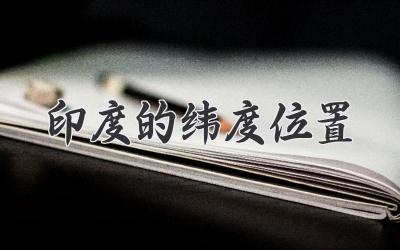 印度的纬度位置